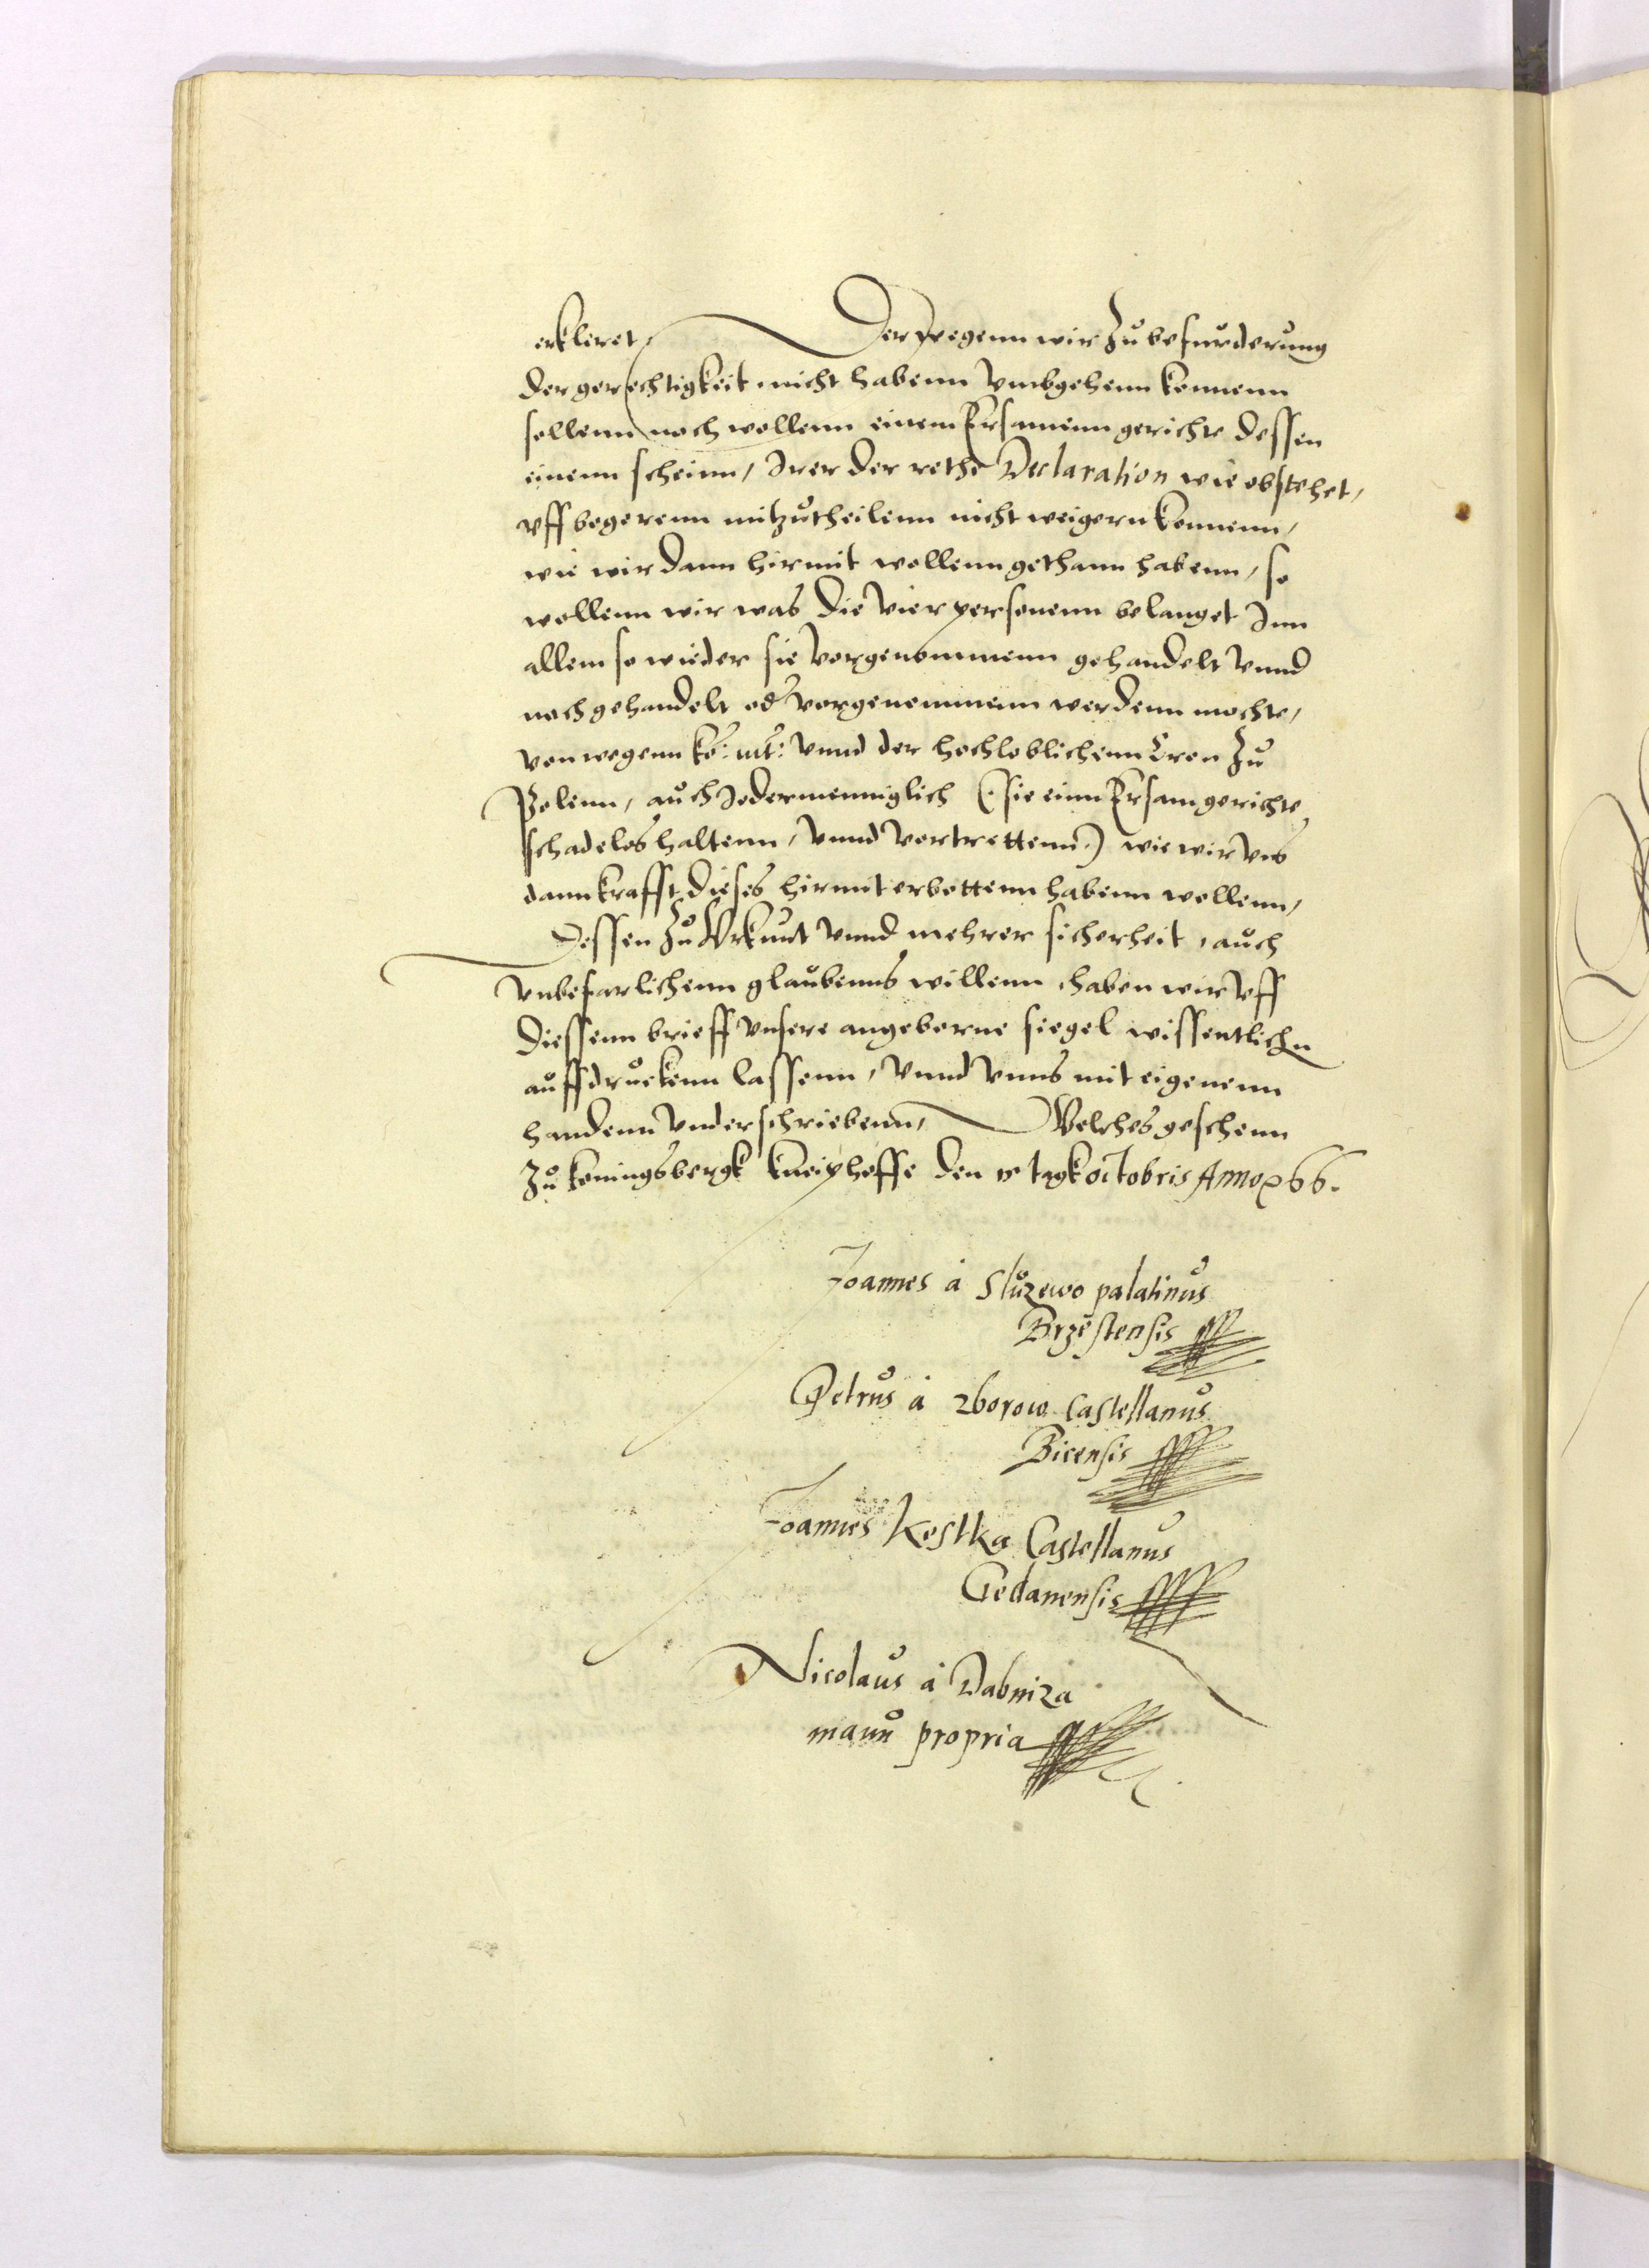 erkleret, Derwegenn wir zu befurderung
der gerechtigkeit nicht habenn vmbgehenn kennenn
sollenn noch wollenn einem Ersamenn gerichte dessen
einenn scheinn, Irer der rethe Declaration wie obstehet,
vff begerenn mitzutheilenn nicht weigern kennenn,
wie wir dann hirmit wollenn gethann habenn, so
wollenn wir was die vier personenn belanget Inn
allem so wieder sie vorgenommenn gehandelt vnnd
noch gehandelt od vorgenommenn werdenn mochte,
von wegenn ko: mt: vnnd der hochloblichenn Cron zu
Polenn, auch Jedermenniglich (: sie einn Ersam gerichte
schadelos haltenn, vnnd vertrettenn :) wie wir vns
dann krafft dieses hirmit erbottenn habenn wollenn,
Dessen zu Vrkunt vnnd mehrer sicherheit, auch
vnbefarlichenn glaubenns willenn, haben wir vff
diessenn brieff vnsere angeborne siegel wissentlichn
auffdruckenn lassenn, vnnd vnns mit eigenenn
handenn vnderschriebenn, Welches geschenn
zu koningsbergk kneiphoffe den tagk octobris Anno 66.
Joannes à Sluzewo palatinus
Brzestensis
Petrus à Zborow Castellanus
Bicensis
Joannes Kostka Castellanus
Gedanensis
Nicolaus à Dabniza
manu propria